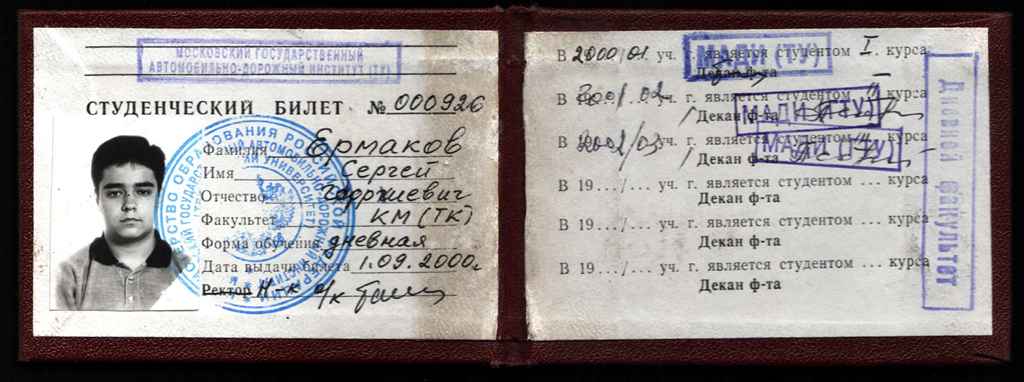 МОСКОВСКИЙ ГОСУДАРСТВЕННЫЙ
АВТОМОБИЛЬНО-ДОРОЖНЫЙ ИНСТИТУТ (ТУ)
СТУДЕНЧЕСКИЙ БИЛЕТ № 000926
Фамилия Ермаков
Имя Сергей
Отчество Георгиевич
Факультет КМ (ТК)
Форма обучения дневная
Дата выдачи билета 1.09.2000г
Ректор
В 2000/01 уч. г. является студентом I курса
МАДИ (ТУ)
Декан ф-та
В 2001/02 уч. г. является студентом курса
Декан ф-та
МАДИ (ТУ)
В 2002/03 уч. г. является студентом курса
МАДИ (ТУ)
Декан ф-та
В 19.../... уч. г. является студентом ... курса
Декан ф-та
В 19.../... уч. г. является студентом ... курса
Декан ф-та
В 19.../... уч. г. является студентом ... курса
Декан ф-та
Дневной факультет